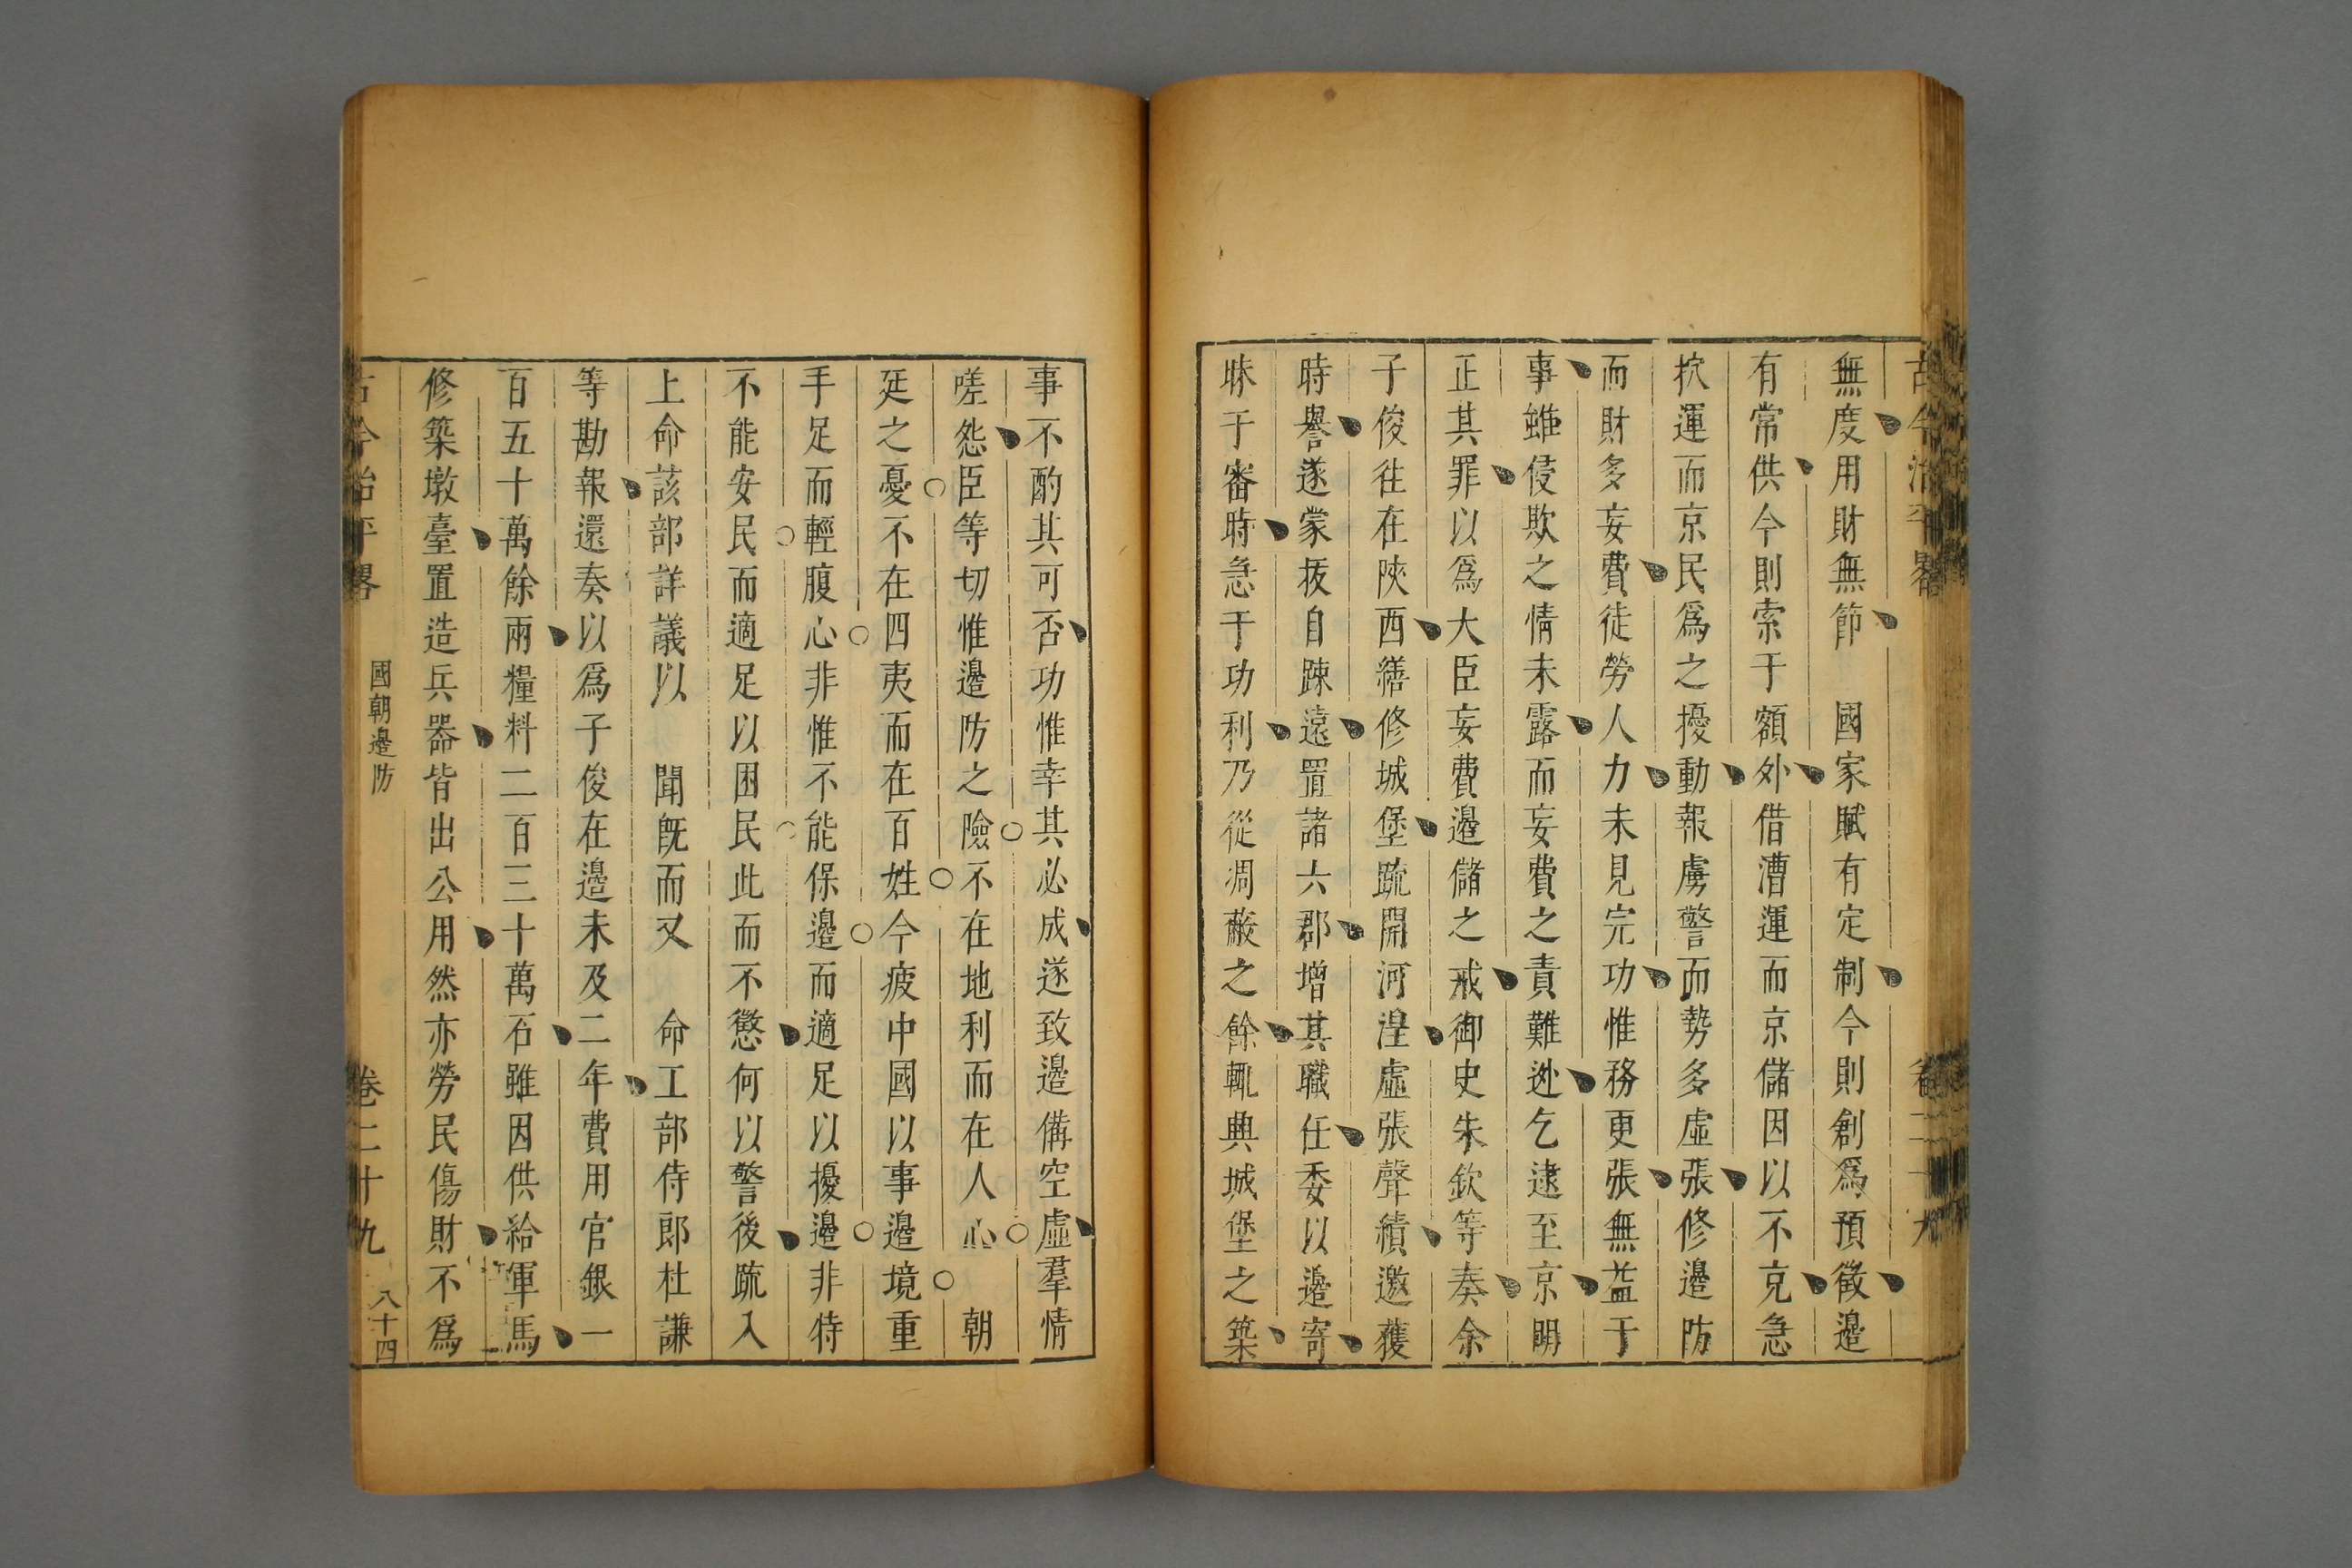 古今治平畧 卷二十九
無度用財無節 國家賦有定制今則創爲預徵邉
有常供今則索于額外借漕運而京儲因以不克急
挖運而京民爲之擾動報虜警而勢多虛張修邉防
而財多妄費徒勞人力未見完功惟務更張無益于
事雖侵欺之情未露而妄費之責難逃乞逮至京明
正其罪以爲大臣妄費邉儲之戒御史朱欽等奏余
子俊往在陝西繕修城堡疏開河湟虛張聲績邀獲
時譽遂蒙抜自踈遠置諸六郡增其職任委以邉寄
昧于審時急于功利乃從凋蔽之餘輒興城堡之築
事不酌其可否功惟幸其必成遂致邉備空虛羣情
嗟怨臣等切惟邉防之險不在地利而在人心 朝
廷之憂不在四夷而在百姓今疲中國以事邉境重
手足而輕腹心非惟不能保邉而適足以擾邉非待
不能安民而適足以困民此而不懲何以警後疏入
上命該部詳議以 聞旣而又 命工部侍郎杜謙
等勘報還奏以爲子俊在邉未及二年費用官銀一
百五十萬餘兩糧料二百三十萬石雖因供給軍馬
修築墩臺置造兵器皆出公用然亦勞民傷財不爲
古今治平畧 國朝邉防 卷二十九 八十四